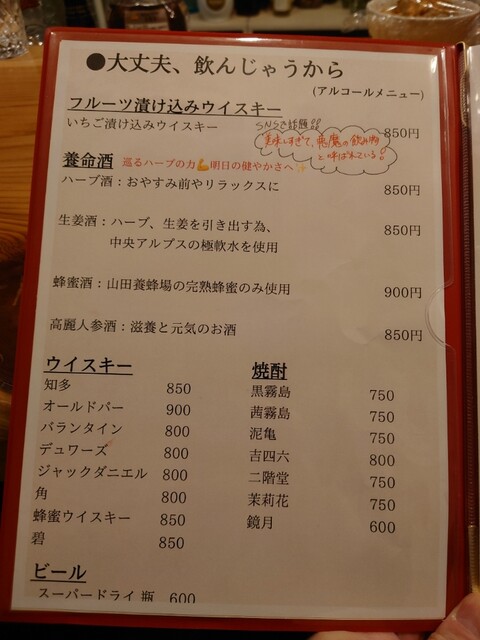 ●大丈夫、飲んじゃうから
(アルコールメニュー)
フルーツ漬け込みウイスキー
いちご漬け込みウイスキー 850円
SNSで話題!!
美味しすぎて、悪魔の飲み物
と呼ばれている!!
養命酒 巡るハーブの力💪明日の健やかさへ✨
ハーブ酒：おやすみ前やリラックスに 850円
生姜酒：ハーブ、生姜を引き出す為、 850円
中央アルプスの極軟水を使用
蜂蜜酒：山田養蜂場の完熟蜂蜜のみ使用 900円
高麗人参酒：滋養と元気のお酒 850円
ウイスキー
知多 850
オールドパー 900
バランタイン 800
デュワーズ 800
ジャックダニエル 800
角 800
蜂蜜ウイスキー 850
碧 850
焼酎
黒霧島 750
茜霧島 750
泥亀 750
吉四六 800
二階堂 750
茉莉花 750
鏡月 600
ビール
スーパードライ 瓶 600